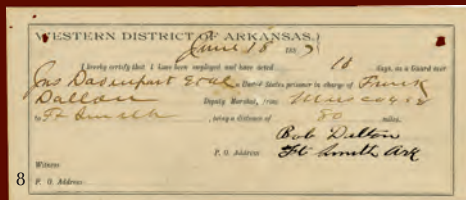 WESTERN DISTRICT OF ARKANSAS.
June 18 188
I hereby certify that I have been employed and have acted 18 days, as a Guard over
Jas Davenport et al United States prisoner in charge of Frank
Dalton Deputy Marshal, from Muscogee
to Ft Smith, being a distance of 80 miles.
Bob Dalton
P. O. Address Ft Smith Ark
Witness
P. O. Address
8